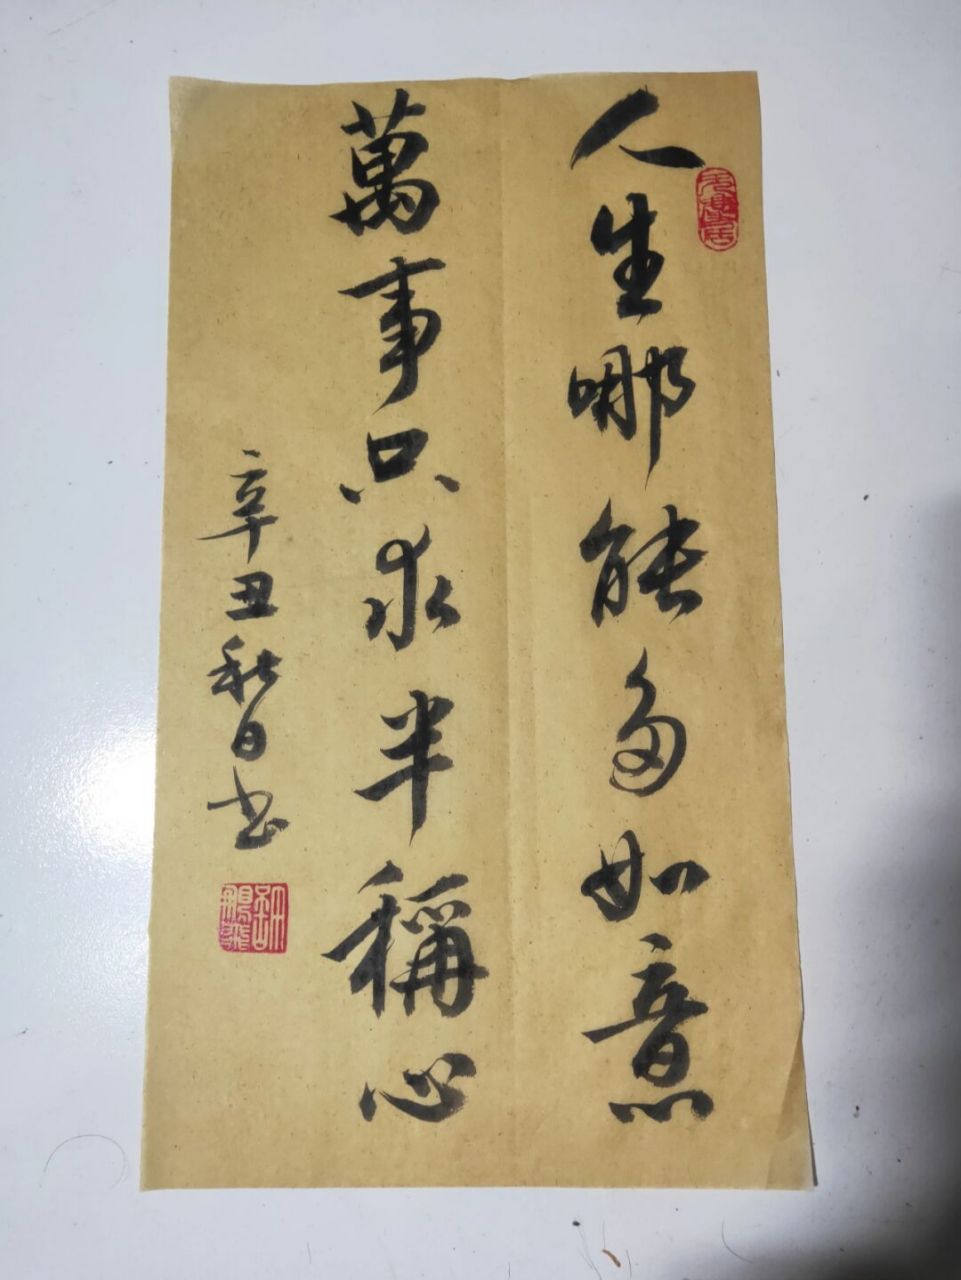 人生哪能多如意
萬事只求半稱心
辛丑秋日書